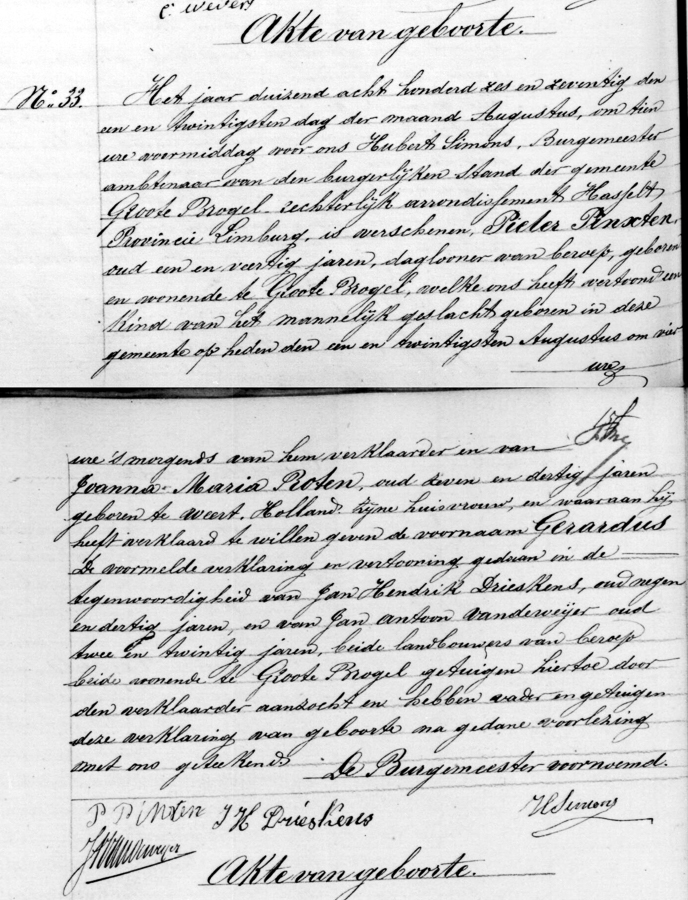 C. Wevers
Akte van geboorte.
No. 33. Het jaar duizend acht honderd zes en zeventig den
een en twintigsten dag der maand Augustus, om tien
ure voormiddag voor ons Hubert Simons, Burgemeester
ambtenaar van den burgerlijken stand der gemeente
Groote Brogel, rechterlijk arrondissement Hasselt,
Provincie Limburg, is verschenen, Pieter Pinxten,
oud een en veertig jaren, daglooner van beroep, geboren
en wonende te Groote Brogel, welke ons heeft vertoond een
Kind van het mannelijk geslacht geboren in deze
gemeente op heden den een en twintigsten Augustus om vier
ure
ure 's morgends van hem verklaarder en van
Joanna Maria Roten, oud zeven en dertig jaren
geboren te Weert, Holland. Zijne huisvrouw, en waaraan hij
heeft verklaard te willen geven de voornaam Gerardus
De voormelde verklaring en vertooning gedaan in de
tegenwoordigheid van Jan Hendrik Drieskens, oud negen
en dertig jaren, en van Jan antoon Vanderweijer oud
twee en twintig jaren, beide landbouwers van beroep
beide wonende te Groote Brogel getuigen hiertoe door
den verklaarder aanzocht en hebben vader en getuigen
deze verklaring van geboorte na gedane voorlezing
met ons geteekend. De Burgemeester voornoemd.
P Pinxten J H Drieskens HSimons
Akte van geboorte.